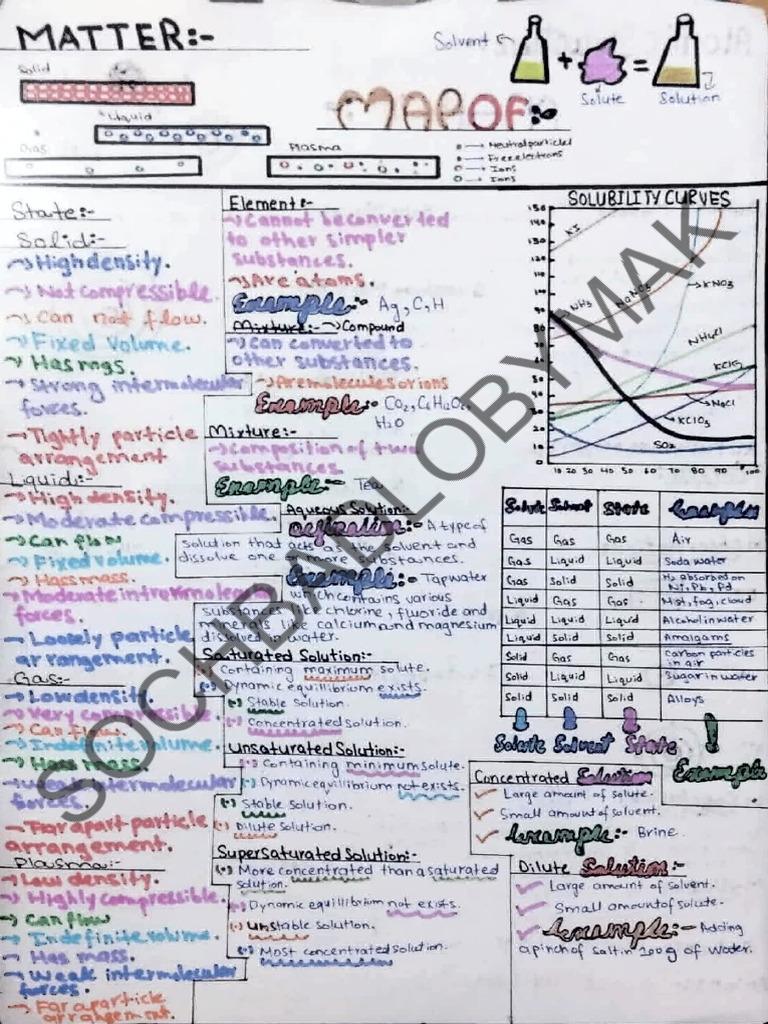 MATTER:-
Solid
Liquid
Gas
Plasma
Neutral particles
Free electrons
Ions
Ions
Solvent
Solute
Solution
MAP OF:-
State:-
Solid:-
High density.
Not compressible.
Can not flow.
Fixed volume.
Has mgs.
Strong intermolecular
forces.
Tightly particle
arrangement
Liquid:-
High density.
Moderate compressible.
Can flow
Fixed volume.
Has mass.
forces.
Loosely particle
arrangement.
Gas:-
Low density.
Very compressible.
Can flow.
Indefinite volume.
Has mass.
intermolecular
forces.
Far apart particle
arrangement.
Plasma:-
Low density.
Highly compressible.
Can flow
Indefinite volume.
Has mass.
Weak intermolecular
forces.
Far apart particle
arrangement.
Element:-
Cannot be converted
to other simpler
substances.
Are atoms.
Example:- Ag, C, H
Mixture:- Compound
can converted to
other substances.
Are molecules or ions
Example:- CO2,
H2O
Mixture:-
Composition of two
substances
Example:- Tea
Aqueous Solution:-
A type of
solution that acts as the solvent and
dissolve one or more substances.
Example:- Tap water
which contains various
substances like chlorine, fluoride and
minerals like calcium and magnesium
dissolved in water.
Saturated Solution:-
Containing maximum solute.
Dynamic equillibrium exists.
Stable solution.
Concentrated solution.
Unsaturated Solution:-
Containing minimum solute.
Dynamic equillibrium not exists.
Stable solution.
Dilute solution.
Supersaturated Solution:-
More concentrated than a saturated
solution.
Dynamic equillibrium not exists.
Unstable solution.
Most concentrated solution.
SOLUBILITY CURVES
150
140
130
120
90
80
70
60
50
40
30
20
10
0
KI
NaNO3
KNO3
NH3
NH4Cl
KCl
NaCl
KClO3
SO2
10 20 30 40 50 60 70 80 90 100
Solute Solvent State Example
Gas Gas Gas Air
Gas Liquid Liquid Soda water
Gas Solid Solid H2 absorbed on
Ni, Pb, Pd
Liquid Gas Gas Mist, fog, cloud
Liquid Liquid Liquid Alcohol in water
Liquid Solid Solid Amalgams
Solid Gas Gas carbon particles
in air
Solid Liquid Liquid Sugar in water
Solid Solid Solid Alloys
Solute Solvent State Example
Concentrated Solution
Large amount of solute.
Small amount of solvent.
Example:- Brine.
Dilute Solution:-
Large amount of solvent.
Small amount of solute.
Example:- Adding
a pinch of salt in 200g of water.
SOCHBADLOBYMAK